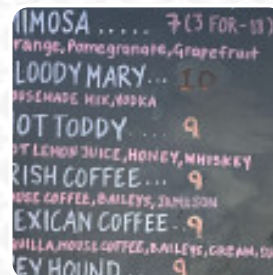 IMOSA ..... 7 (3 FOR-18)
range, Pomegranate, Grapefruit
LOODY MARY... 10
OUSEMADE MIX, VODKA
OT TODDY .... 9
OT LEMON JUICE, HONEY, WHISKEY
RISH COFFEE... 9
OUSE COFFEE, BAILEYS, JAMESON
EXICAN COFFEE.. 9
UILLA, HOUSE COFFEE, BAILEYS, CREAM,
EY HOUND 9